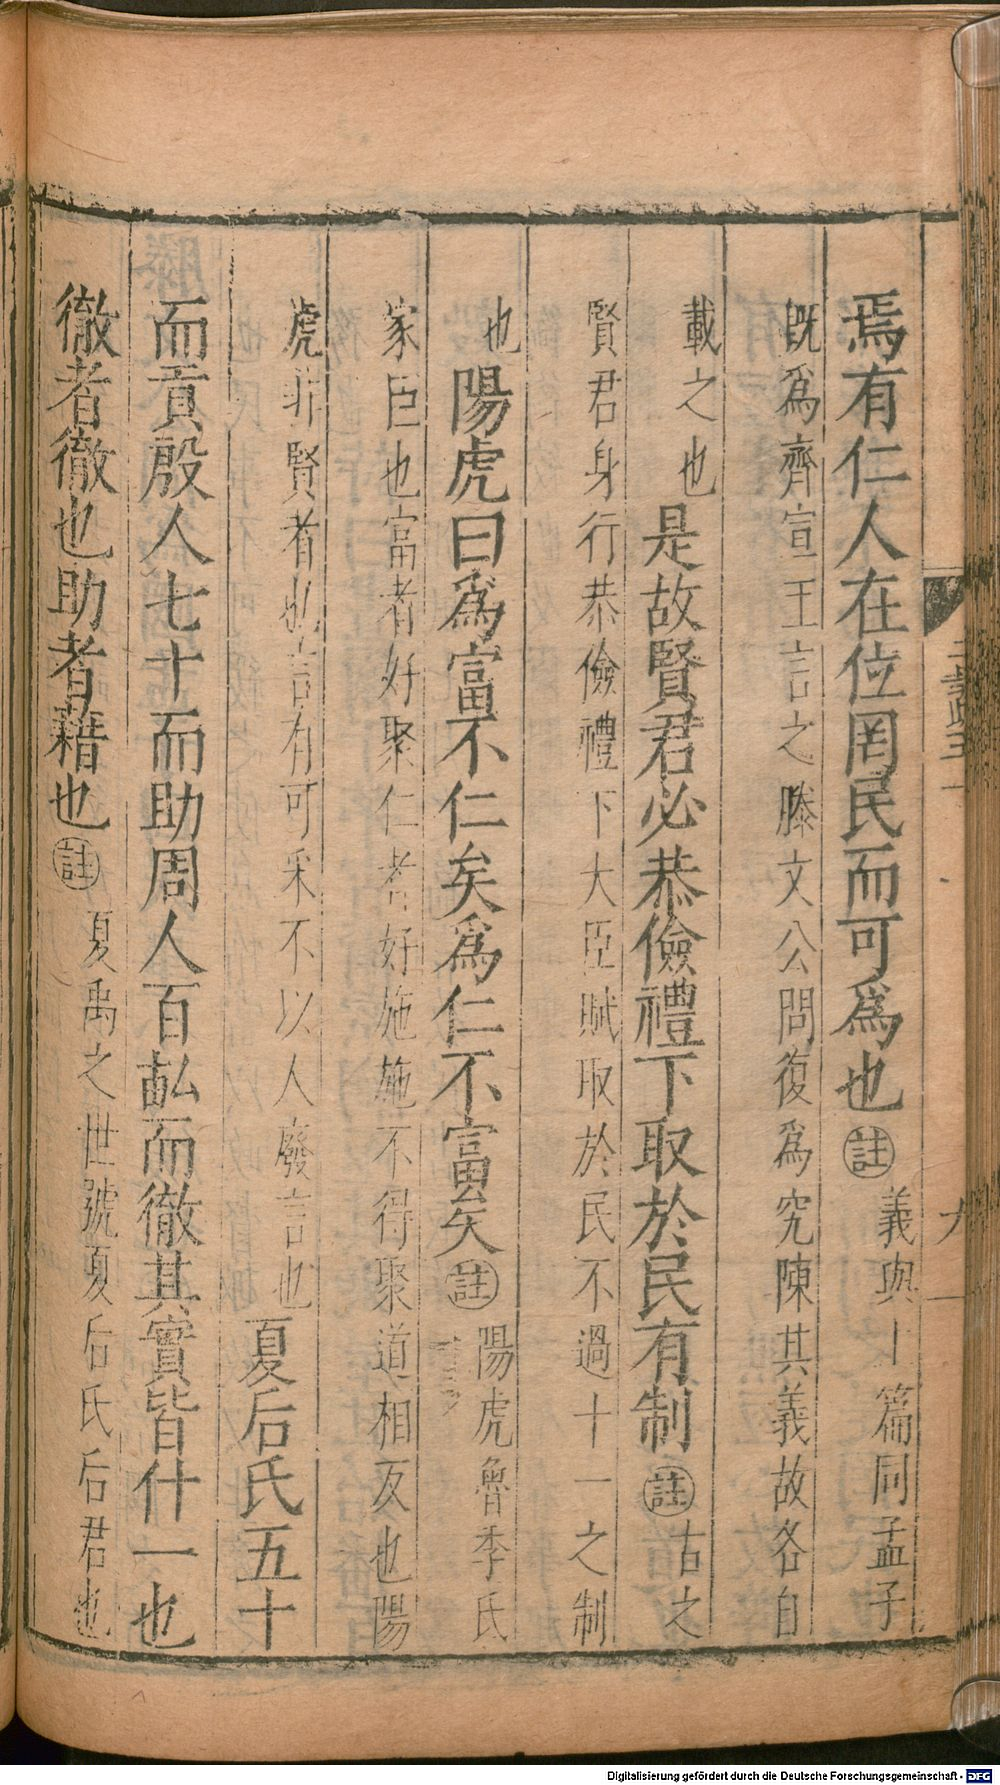 焉有仁人在位罔民而可爲也註義與上篇同孟子
旣爲齊宣王言之滕文公問復爲究陳其義故各自
載之也是故賢君必恭儉禮下取於民有制註古之
賢君身行恭儉禮下大臣賦取於民不過十一之制
也陽虎曰爲富不仁矣爲仁不富矣註陽虎魯季氏
家臣也富者好聚仁者好施施不得聚道相反也陽
虎非賢者也言有可采不以人廢言也夏后氏五十
而貢殷人七十而助周人百畝而徹其實皆什一也
徹者徹也助者藉也註夏禹之世號夏后氏后君也
Digitalisierung gefördert durch die Deutsche Forschungsgemeinschaft - DFG